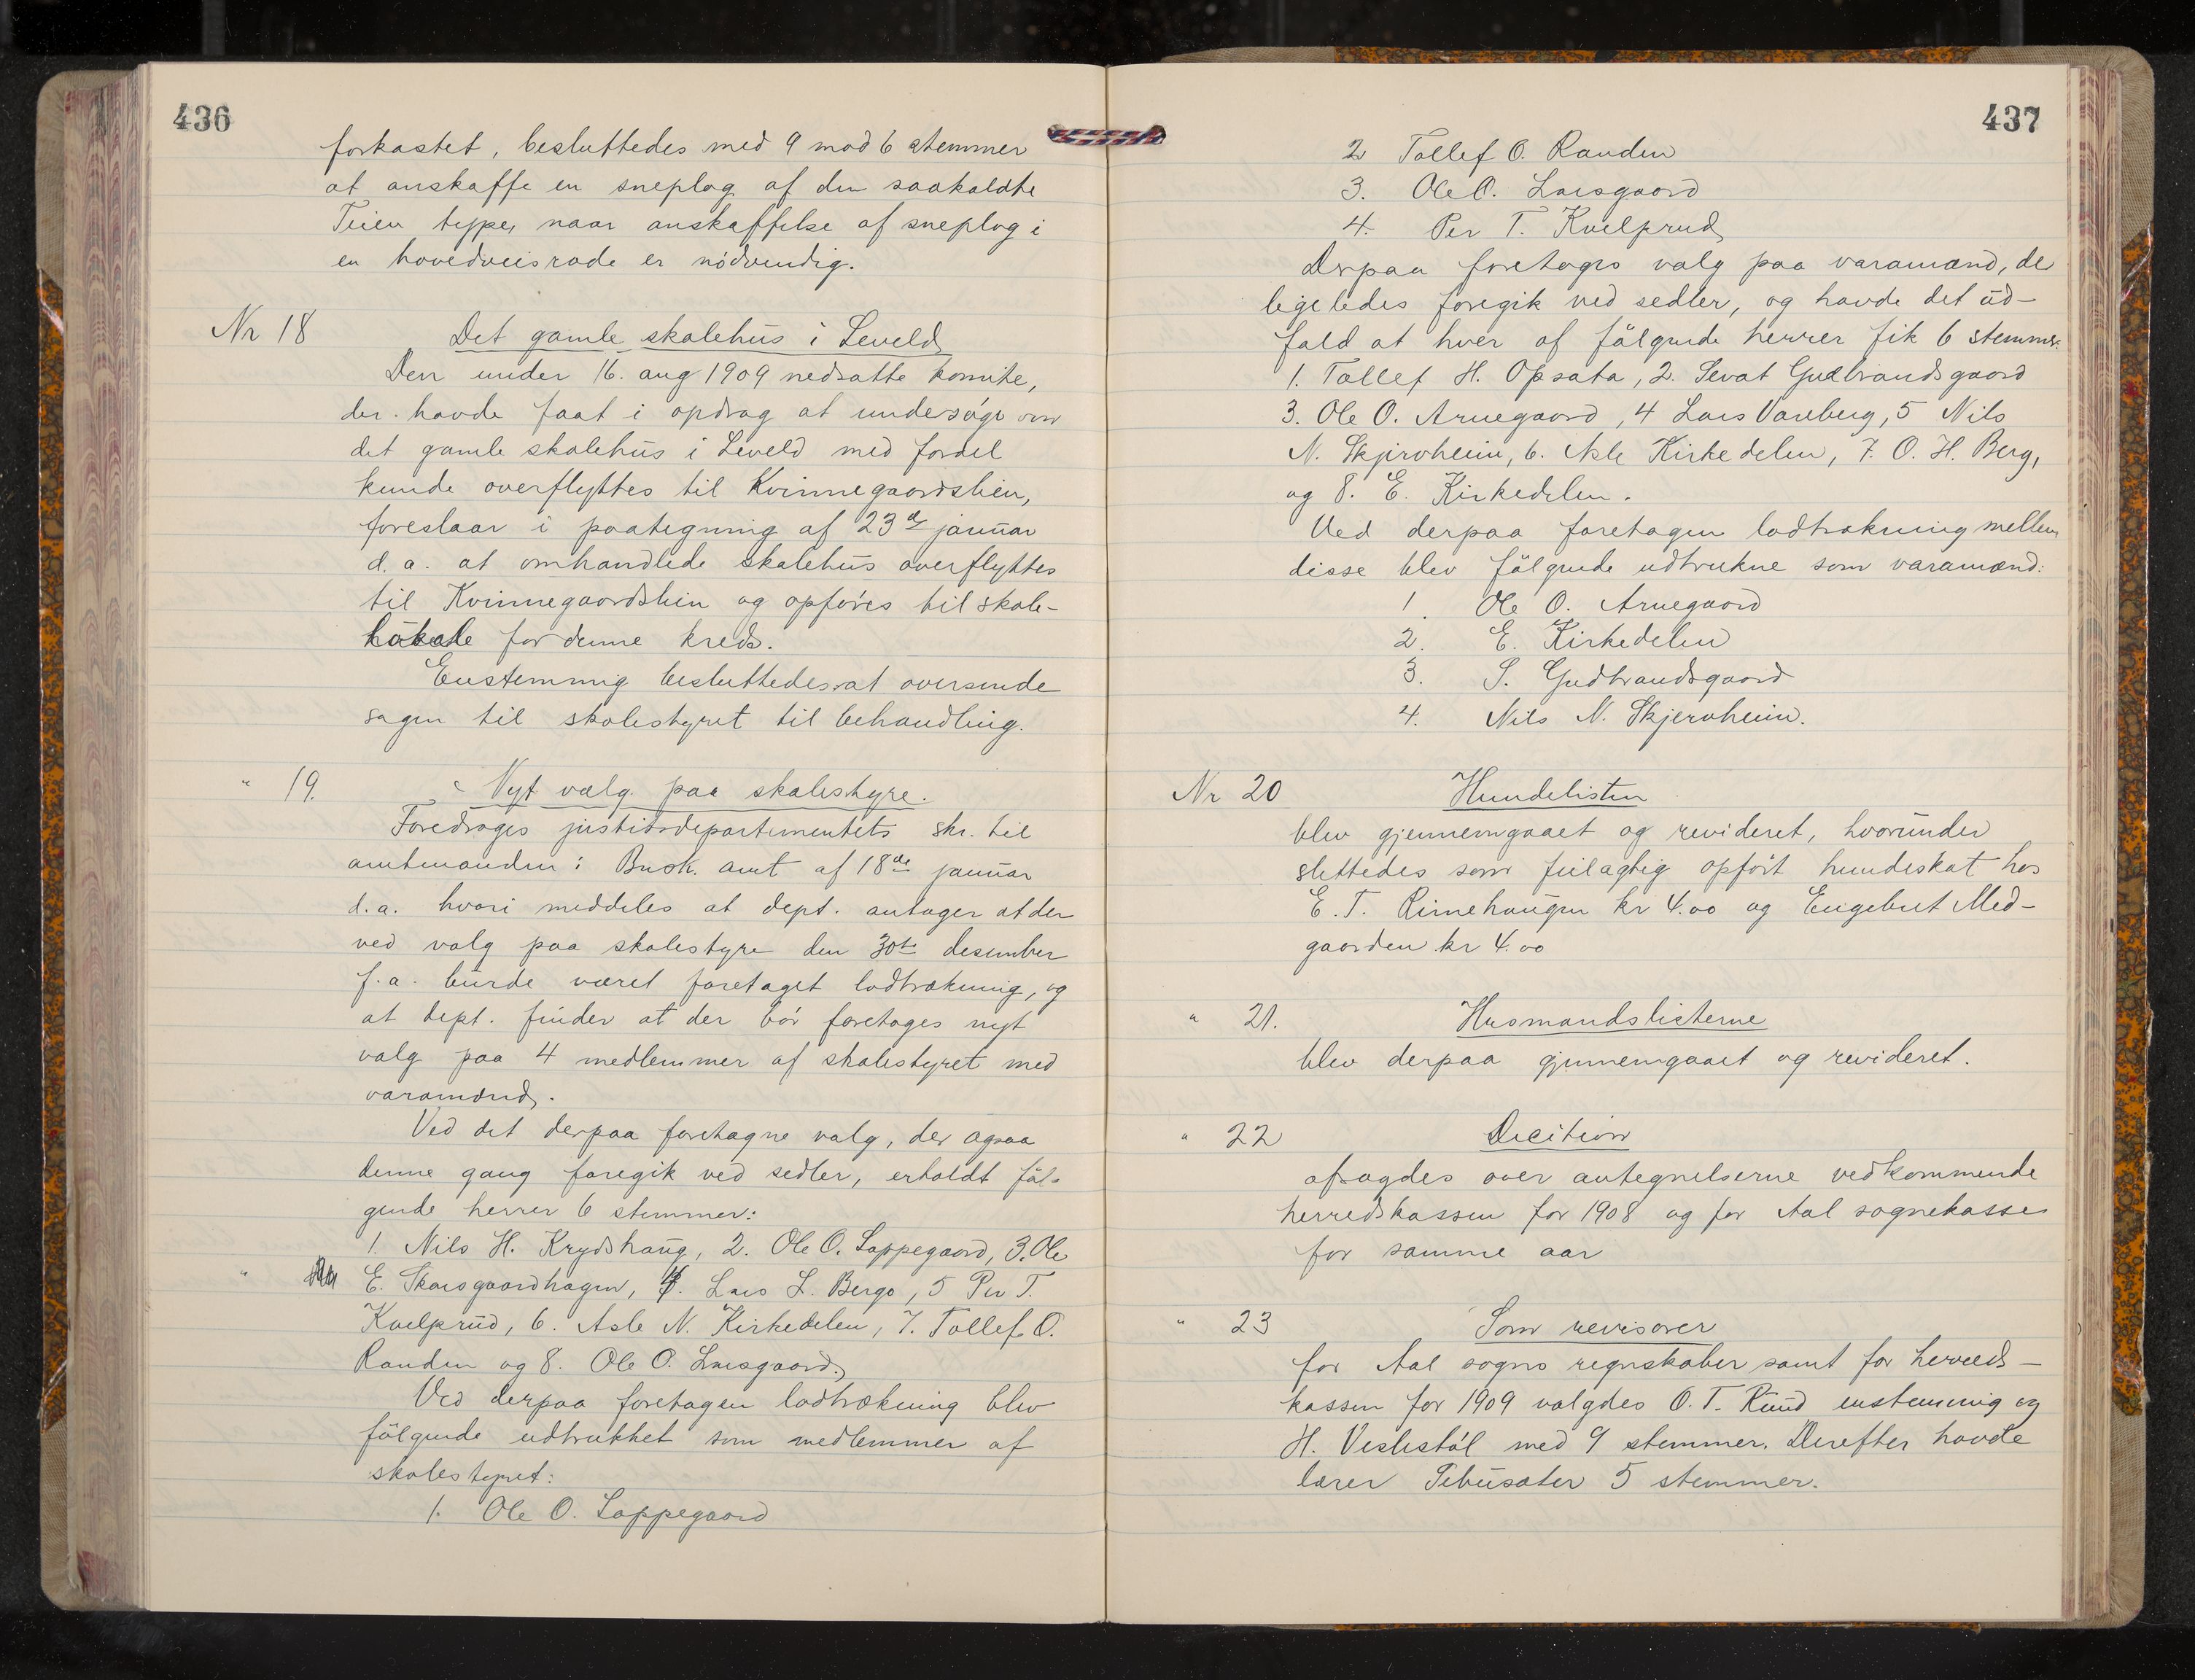 436
forkastet, besluttedes med 9 mod 6 stemmer
at anskaffe en sneplog af den saakaldte
Teien type, naar anskaffelse af sneplog i
en hovedveisrode er nödvendig.
Nr 18 Det gamle skolehus i Leveld
Den under 16. aug 1909 nedsatte komite,
der havde faat i opdrag at undersöge om
det gamle skolehus i Leveld med fordel
kunde overflyttes til Kvinnegaardslien,
foreslaar i paategning af 23de januar
d.a. at omhandlede skolehus overflyttes
til Kvinnegaardslien og opföres til skole-
lokale for denne kreds.
Enstemmig besluttedes at oversende
sagen til skolestyret til behandling.
" 19. Nyt valg paa skolestyre.
Foredroges justitsdepartementets skr. til
amtmanden i Busk. amt af 18de januar
d.a. hvori meddeles at dept. antager at der
ved valg paa skolestyre den 30te desember
f.a. burde været foretaget lodtrækning, og
at dept. finder at der bör foretages nyt
valg paa 4 medlemmer af skolestyret med
varamænd.
Ved det derpaa foretagne valg, der ogsaa
denne gang foregik ved sedler, erholdt föl-
gende herrer 6 stemmer:
1. Nils H. Krydshaug, 2. Ole O. Lappegaard, 3. Ole
" E. Skarsgaardhagen, 4. Lars L. Bergo, 5 Per T.
Kvelprud, 6. Asle N. Kirkedelen, 7. Tollef O.
Randen og 8. Ole O. Larsgaard.
Ved derpaa foretagen lodtrækning blev
fölgende udtrukket som medlemmer af
skolestyret:
1. Ole O. Lappegaard
437
2 Tollef O. Randen
3. Ole O. Larsgaard
4. Per T. Kvelprud
Derpaa foretoges valg paa varamænd, der
ligeledes foregik ved sedler, og havde det ud-
fald at hver af fölgende herrer fik 6 stemmer:
1. Tollef H. Opsata, 2. Sevat Gudbrandsgaard
3. Ole O. Arnegaard, 4 Lars Vareberg, 5 Nils
N. Skjervheim, 6. Asle Kirkedelen, 7. O. H. Berg,
og 8. E. Kirkedelen.
Ved derpaa foretagen lodtrækning mellem
disse blev fölgende udtrukne som varamænd:
1 Ole O. Arnegaard
2. E. Kirkedelen
3. S. Gudbrandsgaard
4. Nils N. Skjervheim.
Nr 20 Hundelisten
blev gjennemgaaet og revideret, hvorunder
slettedes som feilagtig opfört hundeskat hos
E. T. Rimehaugen kr 4.00 og Engebret Med-
gaarden kr 4.00
" 21. Husmandslisterne
blev derpaa gjennemgaaet og revideret.
" 22 Decition
afsagdes over antegnelserne vedkommende
herredskassen for 1908 og for Aal sognekasse
for samme aar
" 23 Som revisorer
for Aal sogns regnskaber samt for herreds-
kassen for 1909 valgdes O. T. Ruud enstemmig og
H. Veslestöl med 9 stemmer. Derefter havde
lærer Tibusæter 5 stemmer.